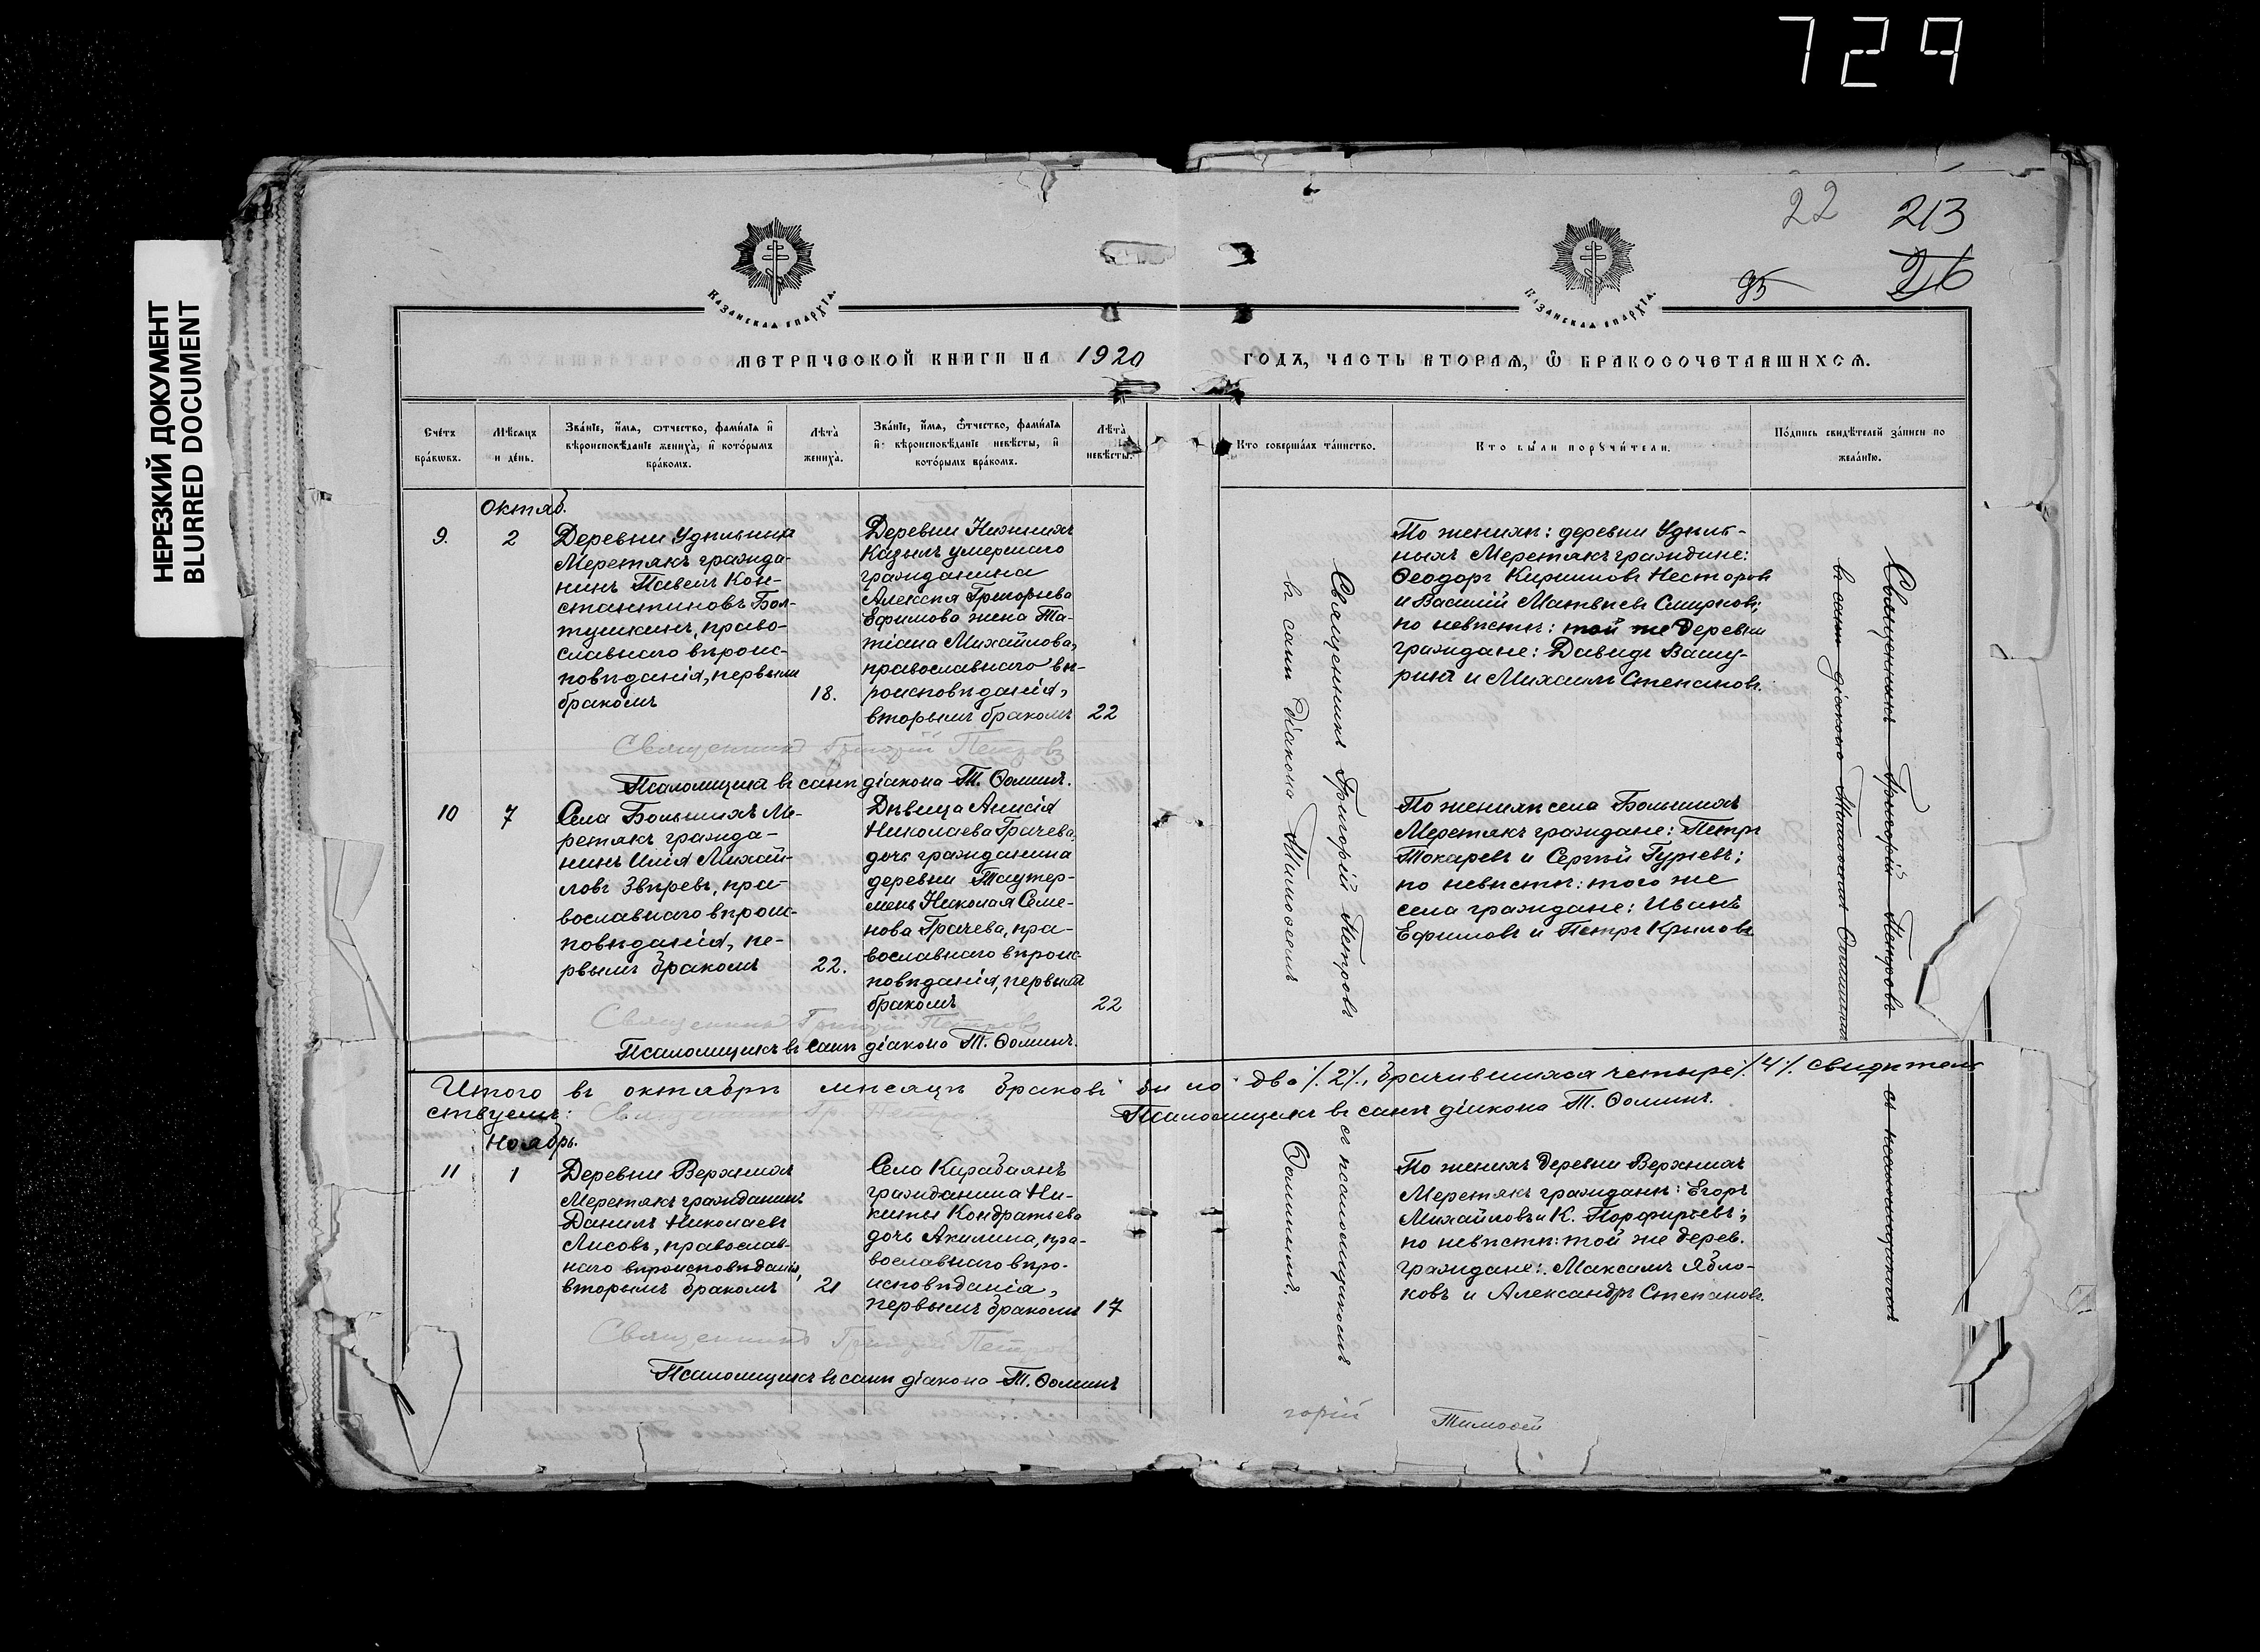 729
НЕРЕЗКИЙ ДОКУМЕНТ
BLURRED DOCUMENT
22 213
95 216
КАЗАНСКАЯ ЕПАРХІЯ.
КАЗАНСКАЯ ЕПАРХІЯ.
МЕТРИЧЕСКОЙ КНИГИ НА 1920 ГОДЪ, ЧАСТЬ ВТОРАЯ, Ѡ БРАКОСОЧЕТАВШИХСЯ.
Счетъ браковъ.
Мѣсяцъ и день.
Званіе, имя, отчество, фамилія и вѣроисповѣданіе жениха, и которымъ бракомъ.
Лѣта жениха.
Званіе, имя, отчество, фамилія и вѣроисповѣданіе невѣсты, и которымъ бракомъ.
Лѣта невѣсты.
Кто совершалъ таинство.
Кто были поручители.
Подпись свидѣтелей записи по желанію.
Октяб.
9. 2
Деревни Удѣльныхъ
Меретякъ гражда-
нинъ Павелъ Кон-
стантиновъ Бол-
тушкинъ, право-
славнаго вѣроис-
повѣданія, первымъ
бракомъ
18.
Деревни Нижнихъ
Казыль умершаго
гражданина
Алексѣя Григорьева
Ефимова жена Та-
тіана Михайлова,
православнаго вѣ-
роисповѣданія,
вторымъ бракомъ
22
Священникъ Григорій Петровъ
Псаломщикъ въ санѣ діакона Т. Ѳоминъ.
По женихѣ: деревни Удѣль-
ныхъ Меретякъ граждане:
Ѳеодоръ Кириловъ Несторовъ
и Василій Матвѣевъ Смирновъ;
по невѣстѣ: той же деревни
граждане: Давидъ Вашу-
ринъ и Михаилъ Степановъ.
10 7
Села Большихъ Ме-
ретякъ гражда-
нинъ Илія Михай-
ловъ Звѣревъ, пра-
вославнаго вѣроис-
повѣданія, пе-
рвымъ бракомъ
22.
Дѣвица Анисія
Николаева Грачева,
дочь гражданина
деревни Таутер-
мень Николая Семе-
нова Грачева, пра-
вославнаго вѣроис-
повѣданія, первымъ
бракомъ
22
Священникъ Григорій Петровъ
Псаломщикъ въ санѣ діакона Т. Ѳоминъ.
По женихѣ села Большихъ
Меретякъ граждане: Петръ
Токаревъ и Сергѣй Гурьевъ;
по невѣстѣ: того же
села граждане: Иванъ
Ефимовъ и Петръ Крыловъ
Священникъ Григорій Петровъ съ псаломщикомъ
въ санѣ діакона Тимоѳеемъ Ѳоминымъ.
Священникъ Григорій Петровъ съ псаломщикомъ
въ санѣ діакона Тимоѳеемъ Ѳоминымъ
Итого въ октябрѣ мѣсяцѣ браковъ было два /.2/., брачившихся четыре /.4/. свидѣтель
ствуемъ: Священникъ Гр. Петровъ
Псаломщикъ въ санѣ діакона Т. Ѳоминъ.
Ноябрь.
11 1
Деревни Верхнихъ
Меретякъ гражданинъ
Данилъ Николаевъ
Лисовъ, православ-
наго вѣроисповѣданія,
вторымъ бракомъ
21
Села Кирабаянъ
гражданина Ни-
киты Кондратьева
дочь Акилина, пра-
вославнаго вѣро-
исповѣданія,
первымъ бракомъ
17
Священникъ Григорій Петровъ
Псаломщикъ въ санѣ діакона Т. Ѳоминъ
По женихѣ деревни Верхнихъ
Меретякъ граждане: Егоръ
Михайловъ и К. Порфирьевъ;
по невѣстѣ: той же дерев.
граждане: Максимъ Ябло-
ковъ и Александръ Степановъ.
горій Тимоѳей